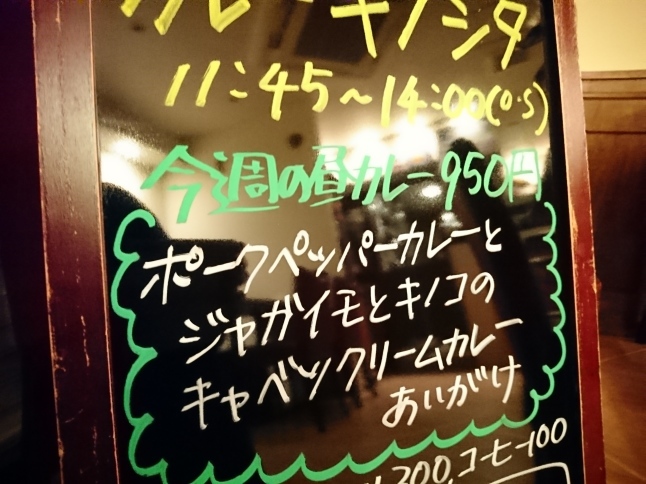 カレーキノシタ
11:45~14:00(O.S)
今週の昼カレー950円
ポークペッパーカレーと
ジャガイモとキノコの
キャベツクリームカレー
あいがけ
200,コーヒー100